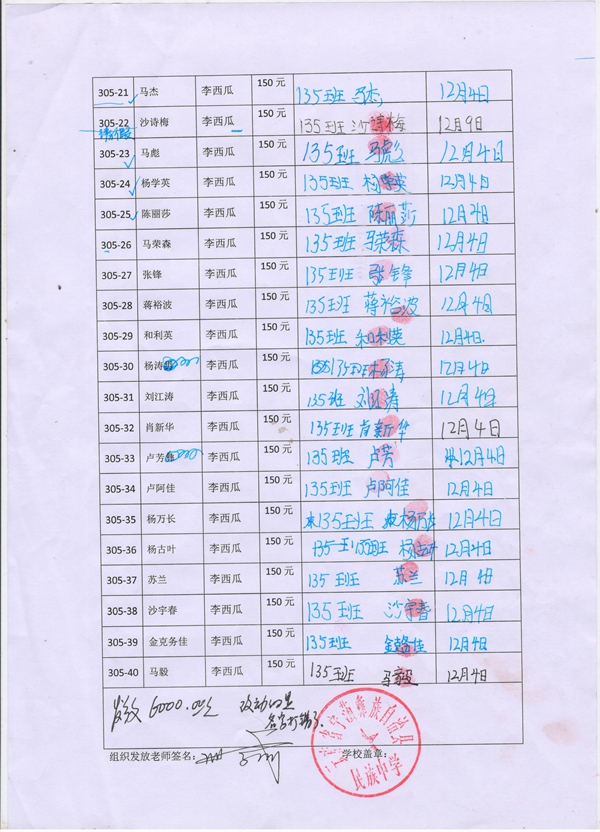 305-21 马杰 李西瓜 150元 135班 马杰 12月4日
305-22 沙诗梅 李西瓜 150元 135班 沙诗梅 12月9日
请假
305-23 马彪 李西瓜 150元 135班 马彪 12月4日
305-24 杨学英 李西瓜 150元 135班 杨学英 12月4日
305-25 陈丽莎 李西瓜 150元 135班 陈丽莎 12月4日
305-26 马荣森 李西瓜 150元 135班 马荣森 12月4日
305-27 张锋 李西瓜 150元 135班 张锋 12月4日
305-28 蒋裕波 李西瓜 150元 135班 蒋裕波 12月4日
305-29 和利英 李西瓜 150元 135班 和利英 12月4日.
305-30 杨涛 李西瓜 150元 135班 杨涛 12月4日
305-31 刘江涛 李西瓜 150元 135班 刘江涛 12月4日
305-32 肖新华 李西瓜 150元 135班 肖新华 12月4日
305-33 卢芳 李西瓜 150元 135班 卢芳 12月4日
305-34 卢阿佳 李西瓜 150元 135班 卢阿佳 12月4日
305-35 杨万长 李西瓜 150元 135班 杨万长 12月4日
305-36 杨古叶 李西瓜 150元 135班 杨古叶 12月4日
305-37 苏兰 李西瓜 150元 135班 苏兰 12月4日
305-38 沙宇春 李西瓜 150元 135班 沙宇春 12月4日
305-39 金克务佳 李西瓜 150元 135班 金克务佳 12月4日
305-40 马毅 李西瓜 150元 135班 马毅 12月4日
6000.00 改动的是
名字打错了.
组织发放老师签名: 学校盖章:
云南省宁蒗彝族自治县
民族中学